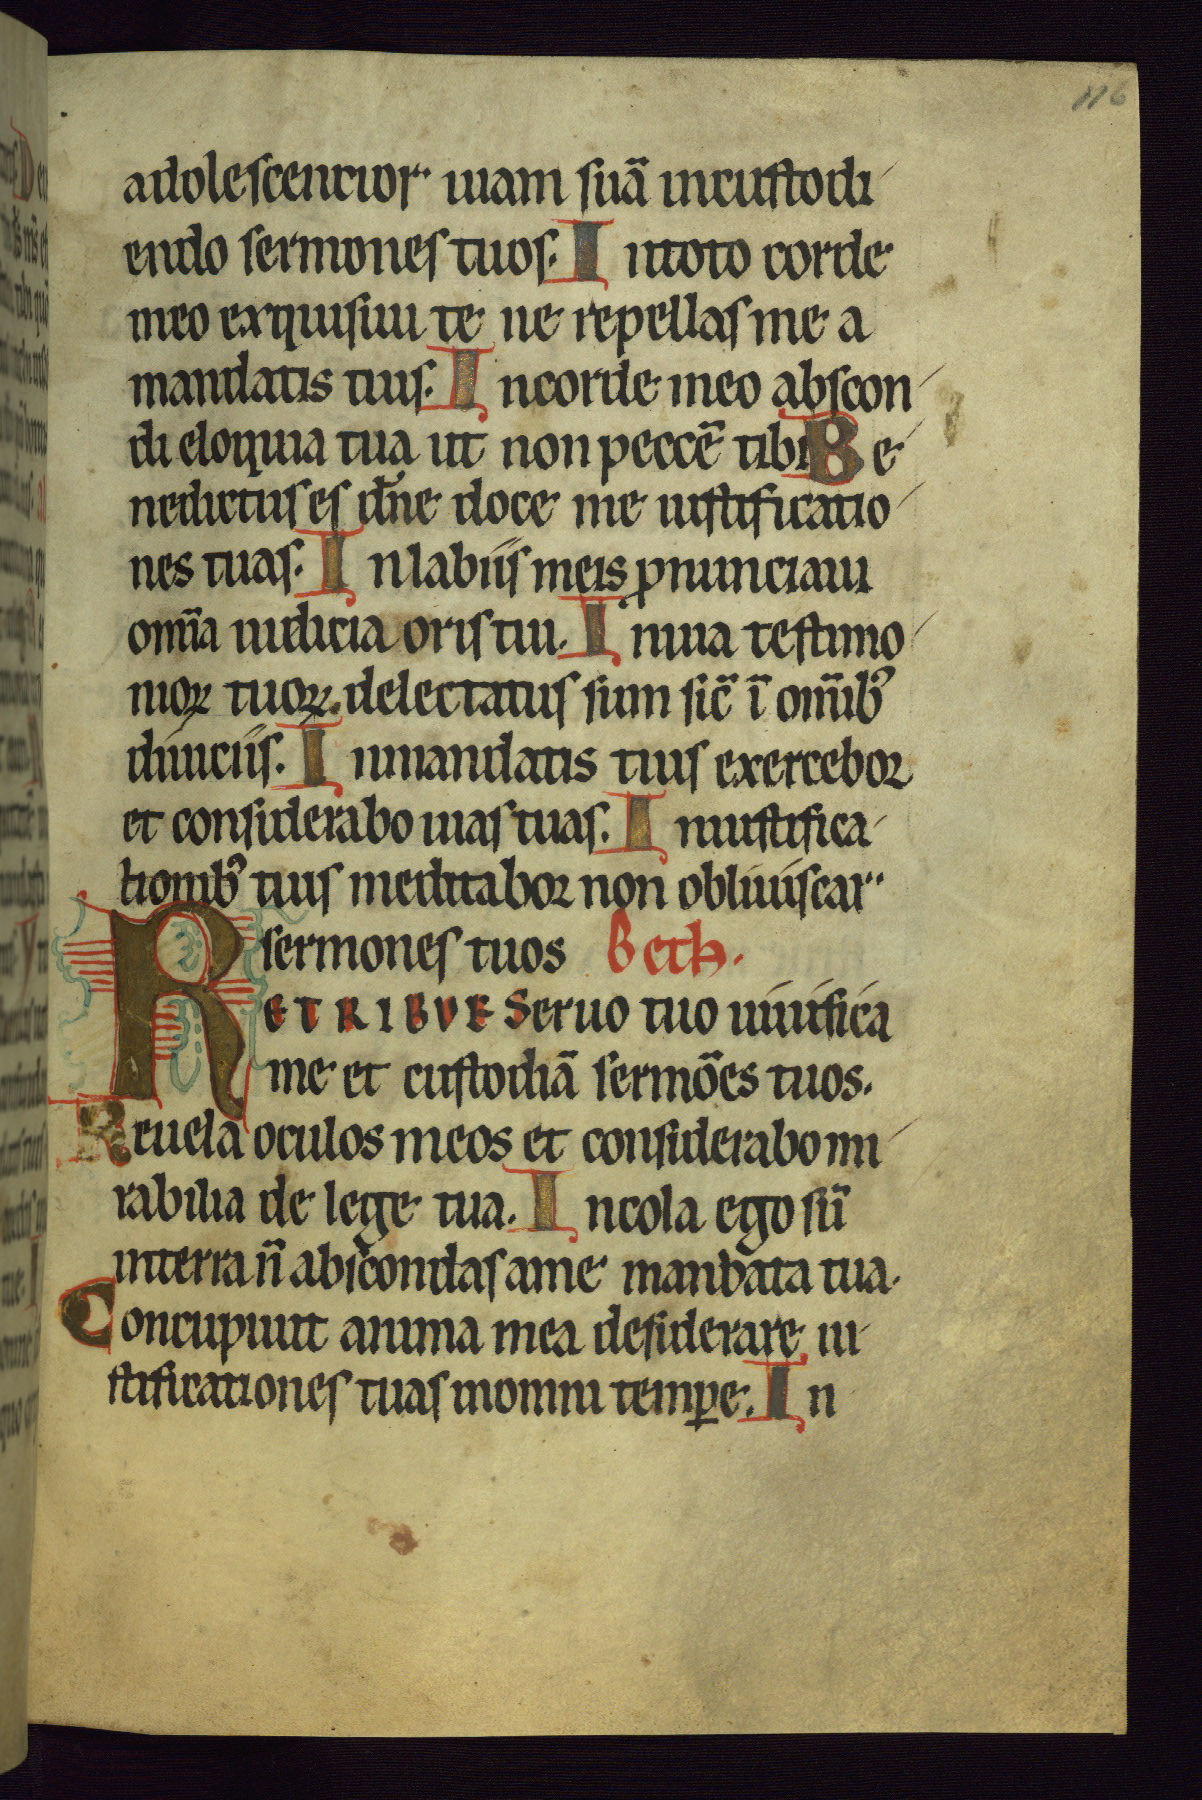 116
adolescentior uiam suā incustodi
endo sermones tuos. In toto corde
meo exquisiui te ne repellas me a
mandatis tuis. In corde meo abscon
di eloquia tua ut non peccē tibi Be
nedictus es dñe doce me iustificatio
nes tuas. In labiis meis ꝓnunciaui
om̄ia iudicia oris tui. In uia testimo
nioꝝ tuoꝝ delectatus sum sic̄ ī om̄ibꝰ
diuiciis. In mandatis tuis exercebor
et considerabo uias tuas. In iustifica
tionibꝰ tuis meditabor non obliuiscar
sermones tuos Beth.
RETRIBVE Seruo tuo uiuifica
me et custodiā sermōes tuos.
Reuela oculos meos et considerabo mi
rabilia de lege tua. Incola ego sū
in terra n̄ abscondas a me mandata tua.
Concupiuit anima mea desiderare iu
stificationes tuas in omni temꝑe. In